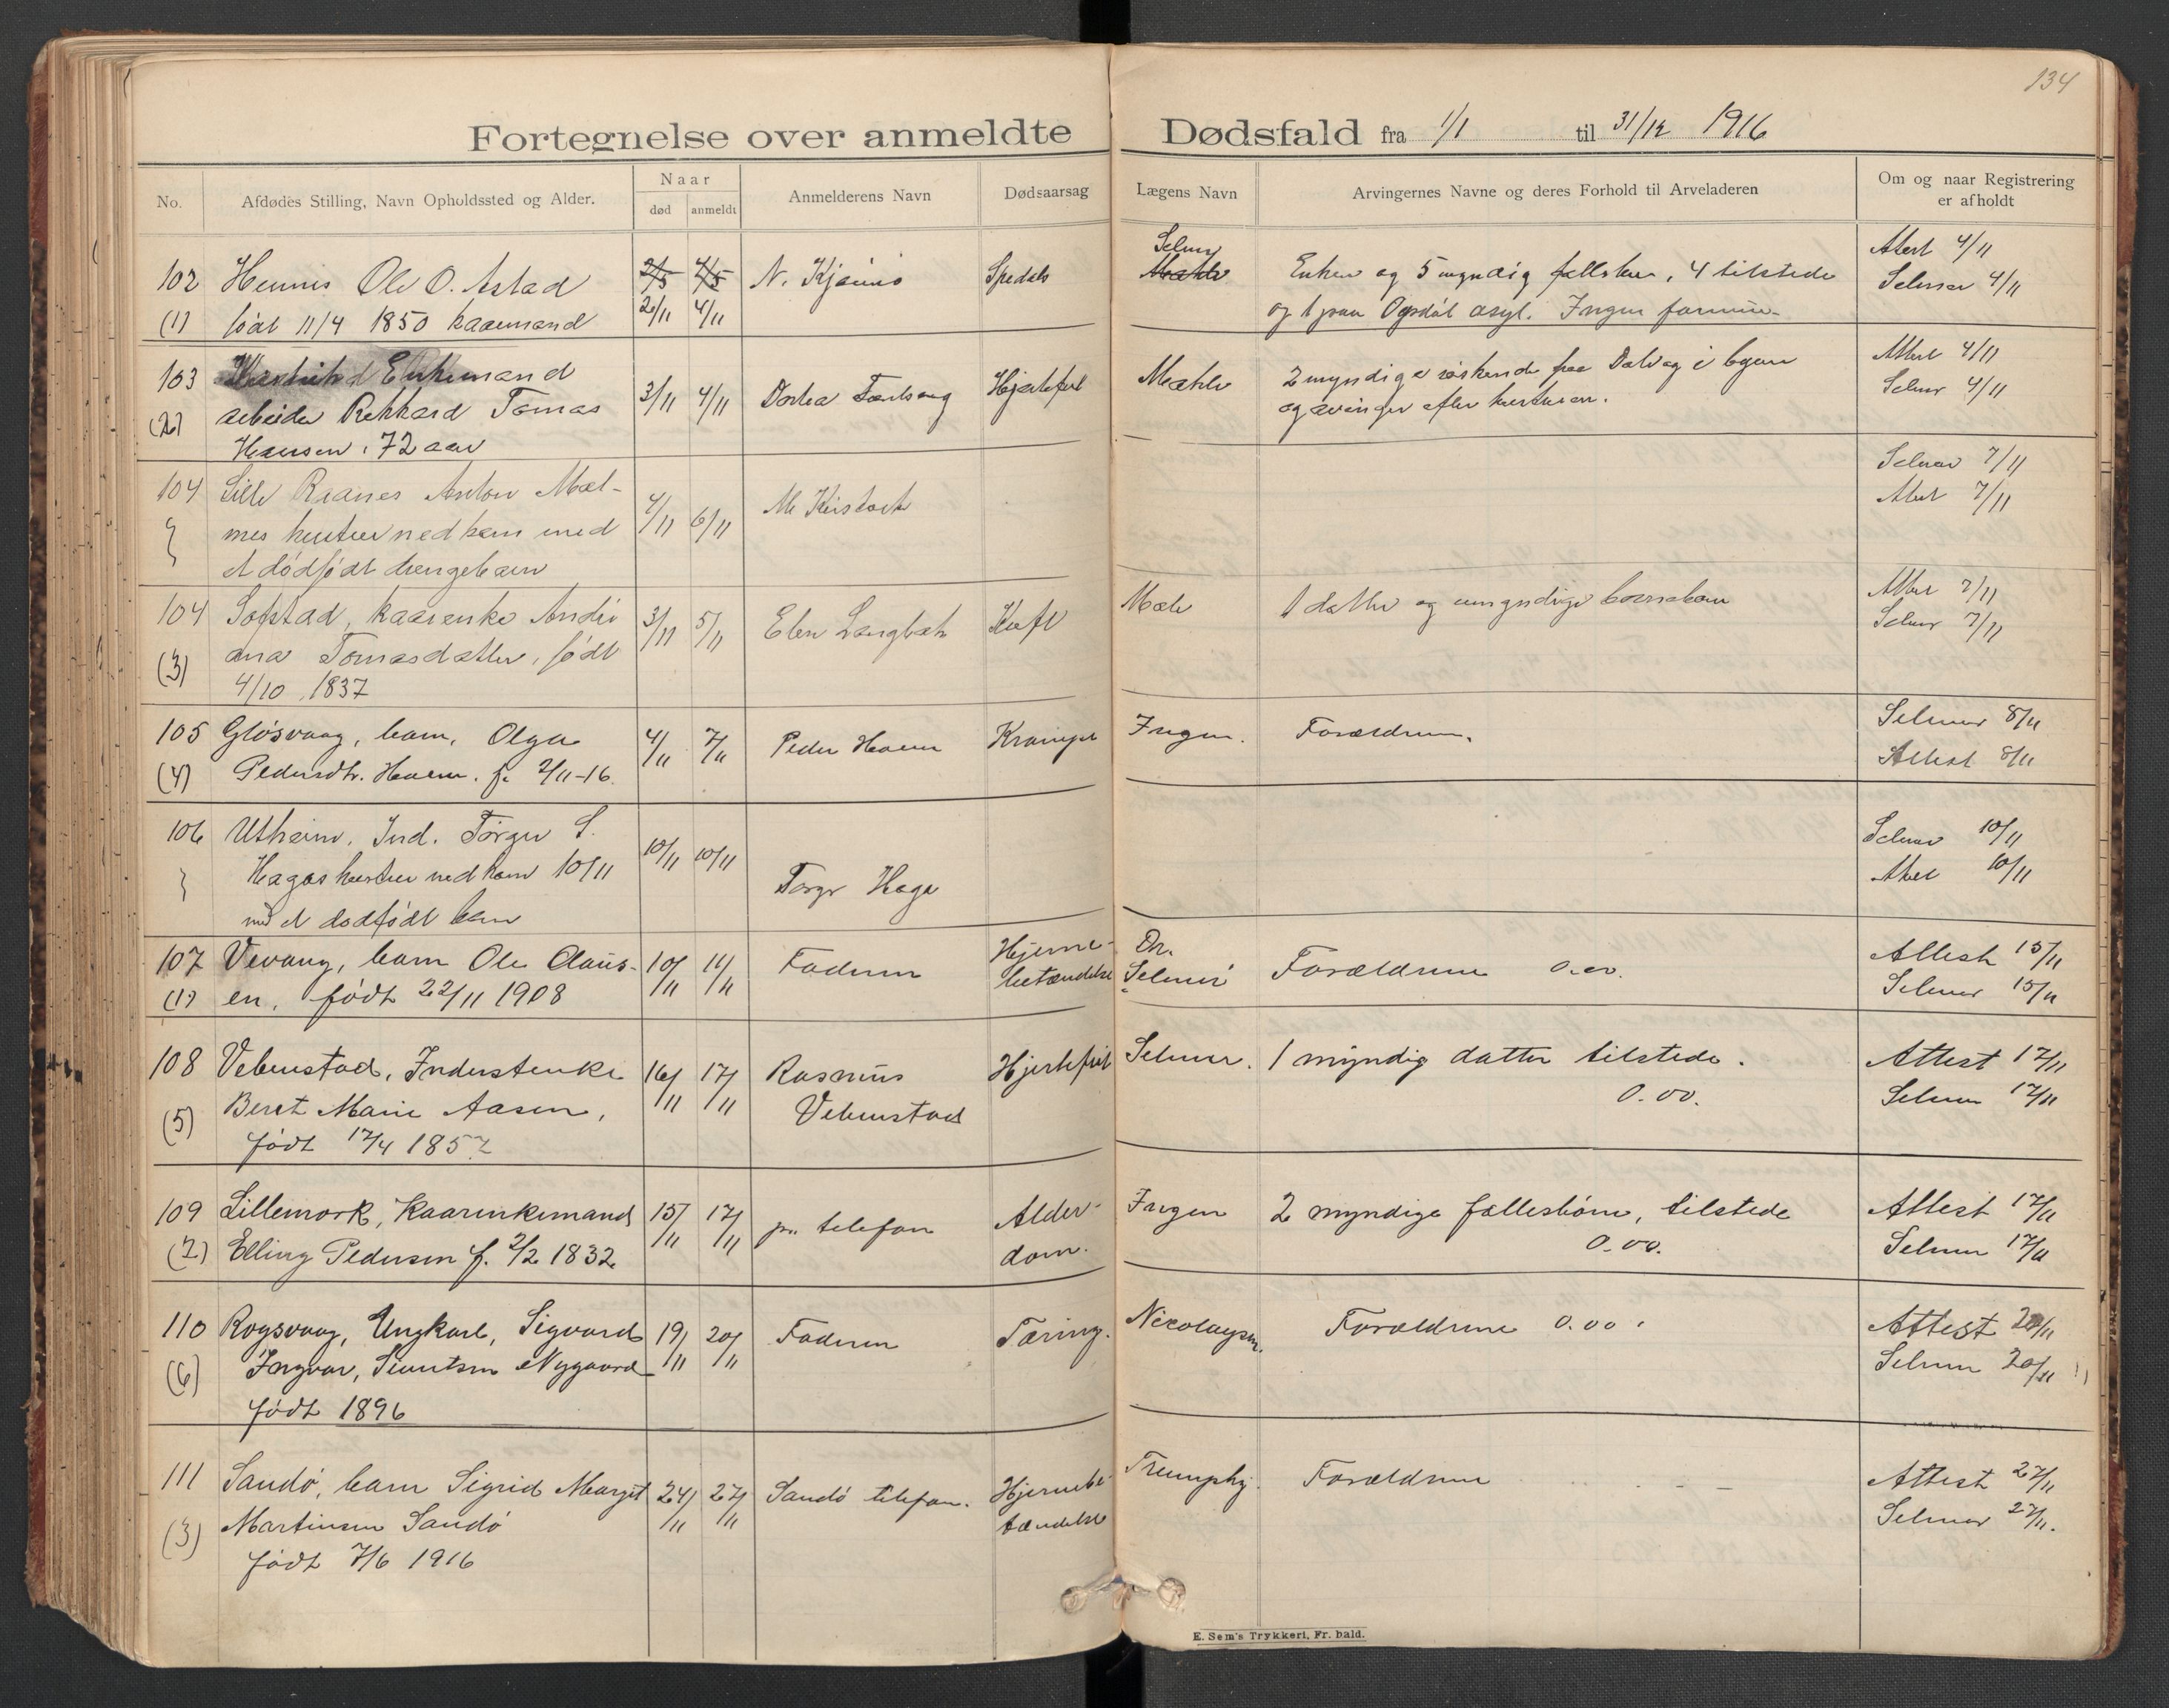 134
Fortegnelse over anmeldte Dødsfald fra 1/1 til 31/12 1916
No.
Afdødes Stilling, Navn Opholdssted og Alder.
Naar
død
anmeldt
Anmelderens Navn
Dødsaarsag
Lægens Navn
Arvingernes Navne og deres Forhold til Arveladeren
Om og naar Registrering
er afholdt
102
(1)
Ole O. Astad
født 11/4 1850 kaarmand
2/5 4/5
2/11 4/11
N.
Spedals
Selmer
Mæhle
Enken og 5 myndig, 4 tilstede
og 1 paa asyl. Ingen formue.
Attest 4/11
Selmer 4/11
103
(2)
Enkemand
arbeider Rikhard Tomas
Hansen, 72 aar
3/11 4/11
Hjertefeil
Mæhle
2 myndige søskende
og arvinger efter hustruen.
Attest 4/11
Selmer 4/11
104
Lille Raanes Anton Mæl-
mes hustru nedkom med
et dødfødt drengebarn
4/11 6/11
Selmer 7/11
Attest 7/11
104
(3)
kaarenke Andri
ana Tomasdatter, født
4/10 1837
3/11 5/11
Elen
Kræft
Mæle
1 datter og umyndige
Attest 7/11
Selmer 7/11
105
(4)
Gløsvaag, barn, Olga
Pedersdtr. f. 2/11-16.
4/11 7/11
Peder
Krampe
Ingen.
Forældrene.
Selmer 8/11
Attest 8/11
106
Utheim, Ind. Torger S.
Hagas hustru nedkom 10/11
med et dødfødt barn
10/11 10/11
Torger Haga
Selmer 10/11
Attest 10/11
107
(1)
Vevang, barn Ole Claus-
en, født 22/11 1908
10/11 11/11
Faderen
Hjerne-
betændelse
Dr.
Selmer
Forældrene 0.00.
Attest 15/11
Selmer 15/11
108
(5)
Vebenstad, Inderstenke
Beret Marie Aasen,
født 17/4 1857
16/11 17/11
Rasmus
Vebenstad
Hjertefeil
Selmer.
1 myndig datter tilstede.
0.00.
Attest 17/11
Selmer 17/11
109
(2)
Lillemork, Kaarenkemand
Elling Pedersen f. 2/2 1832
15/11 17/11
pr. telefon
Alder-
dom.
Ingen
2 myndige fællesbørn, tilstede
0.00.
Attest 17/11
Selmer 17/11
110
(6)
Rogsvaag, Ungkarl, Sigvard
Ingvar, Nygaard
født 1896
19/11 20/11
Faderen
Tæring.
Nicolaysen.
Forældrene 0.00.
Attest 20/11
Selmer 20/11
111
(3)
Sandø, barn Sigrid Margit
Martinsen Sandø
født 7/6 1916
24/11 27/11
Sandø telefon.
Hjernebe-
tændelse
Forældrene
Attest 27/11
Selmer 27/11.
E. Sem's Trykkeri, Fr. hald.